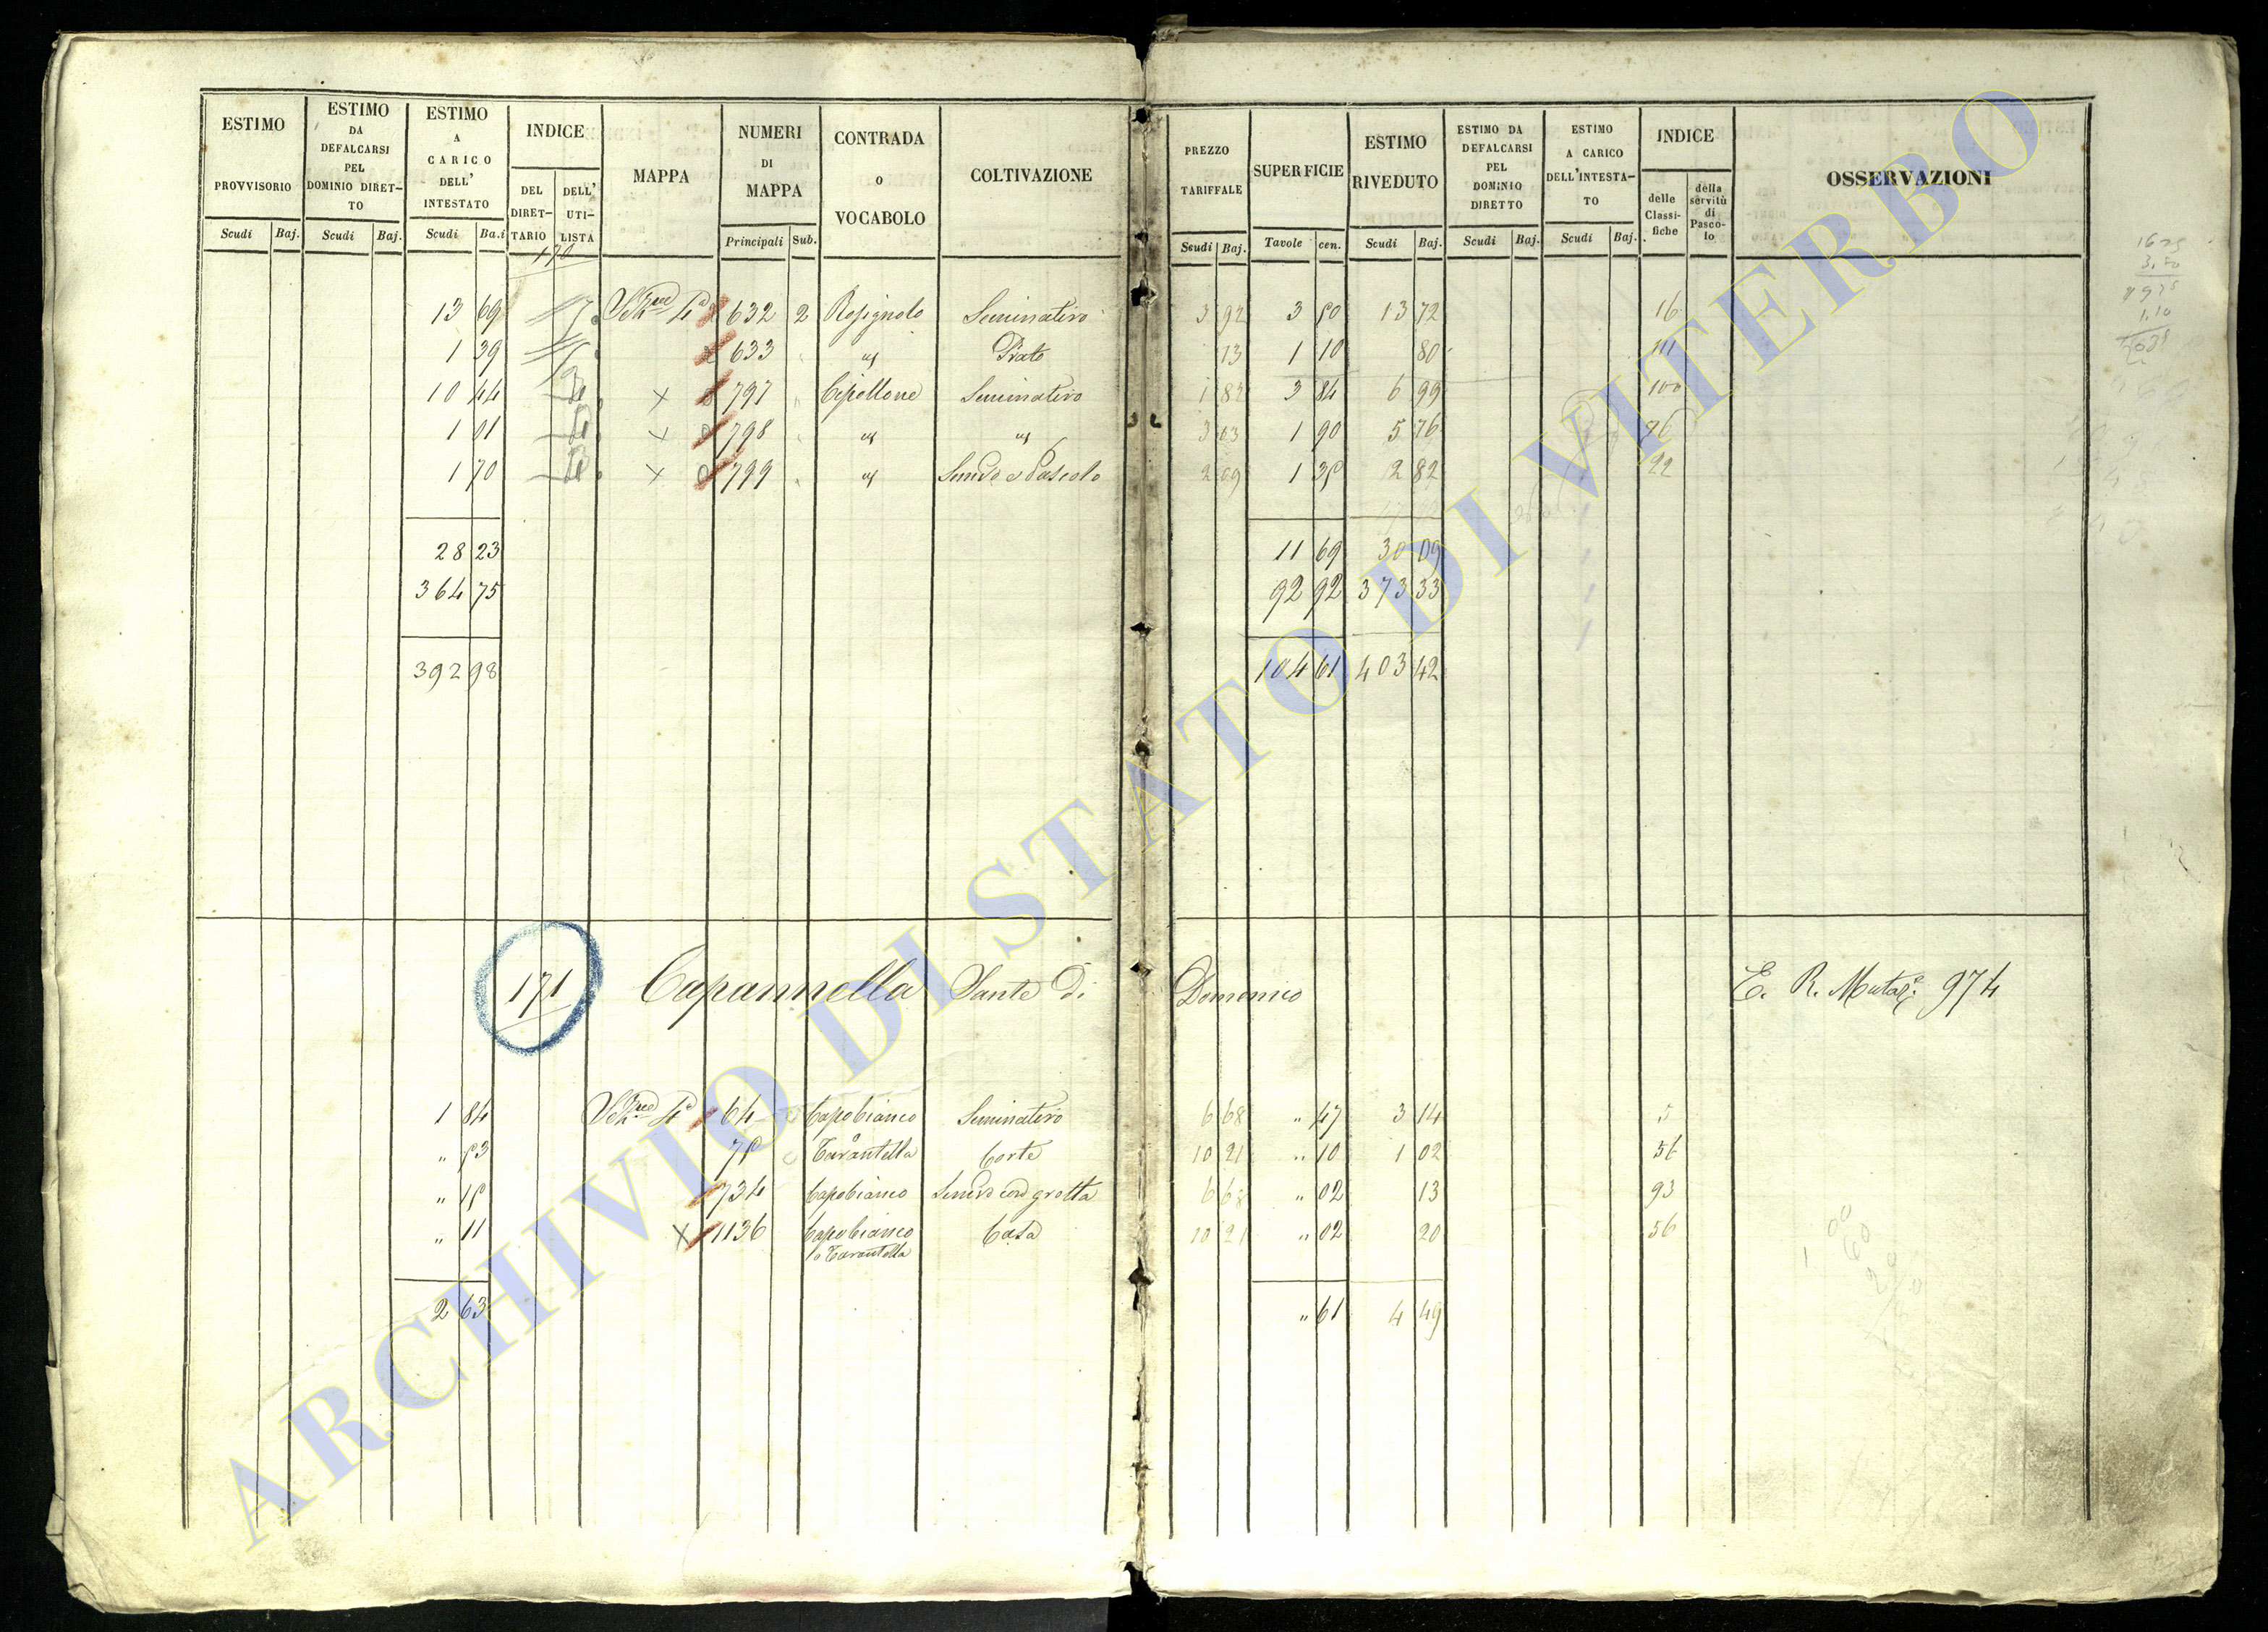 ESTIMO PROVVISORIO
ESTIMO DA DEFALCARSI PEL DOMINIO DIRET-TO
ESTIMO A CARICO DELL' INTESTATO
INDICE
DEL DIRET-TARIO
DELL' UTI-LISTA
MAPPA
NUMERI DI MAPPA
CONTRADA O VOCABOLO
COLTIVAZIONE
PREZZO TARIFFALE
SUPERFICIE
ESTIMO RIVEDUTO
ESTIMO DA DEFALCARSI PEL DOMINIO DIRETTO
ESTIMO A CARICO DELL'INTESTA-TO
INDICE
delle Classi-fiche
della servitù di Pasco-lo
OSSERVAZIONI
Scudi Baj. Scudi Baj. Scudi Ba.i Principali Sub. Scudi Baj. Tavole cen. Scudi Baj. Scudi Baj. Scudi Baj.
170
13 69 632 2 Rosignolo Seminativo 3 92 3 50 13 72 16
1 39 633 " " Prato 73 1 10 80 111
10 44 X 797 " Cipollone Seminativo 1 82 3 84 6 99 100
1 01 X 798 " " " 3 03 1 90 5 76 76
1 70 X 799 " " Semvo e Pascolo 2 09 1 35 2 82 22
28 23 11 69 30 09
364 75 92 92 373 33
392 98 104 61 403 42
171 Capannella Sante di Domenico E. R. Mutaze 974
1 84 64 Capobianco Seminativo 6 68 " 47 3 14 5
" 53 75 Tarantella Corte 10 21 " 10 1 02 56
" 15 734 Capobianco Semvo con grotta 6 68 " 02 13 93
" 11 X 1136 Capobianco Casa 10 21 " 02 20 56
o Tarantella
2 63 " 61 4 49
ARCHIVIO DI STATO DI VITERBO